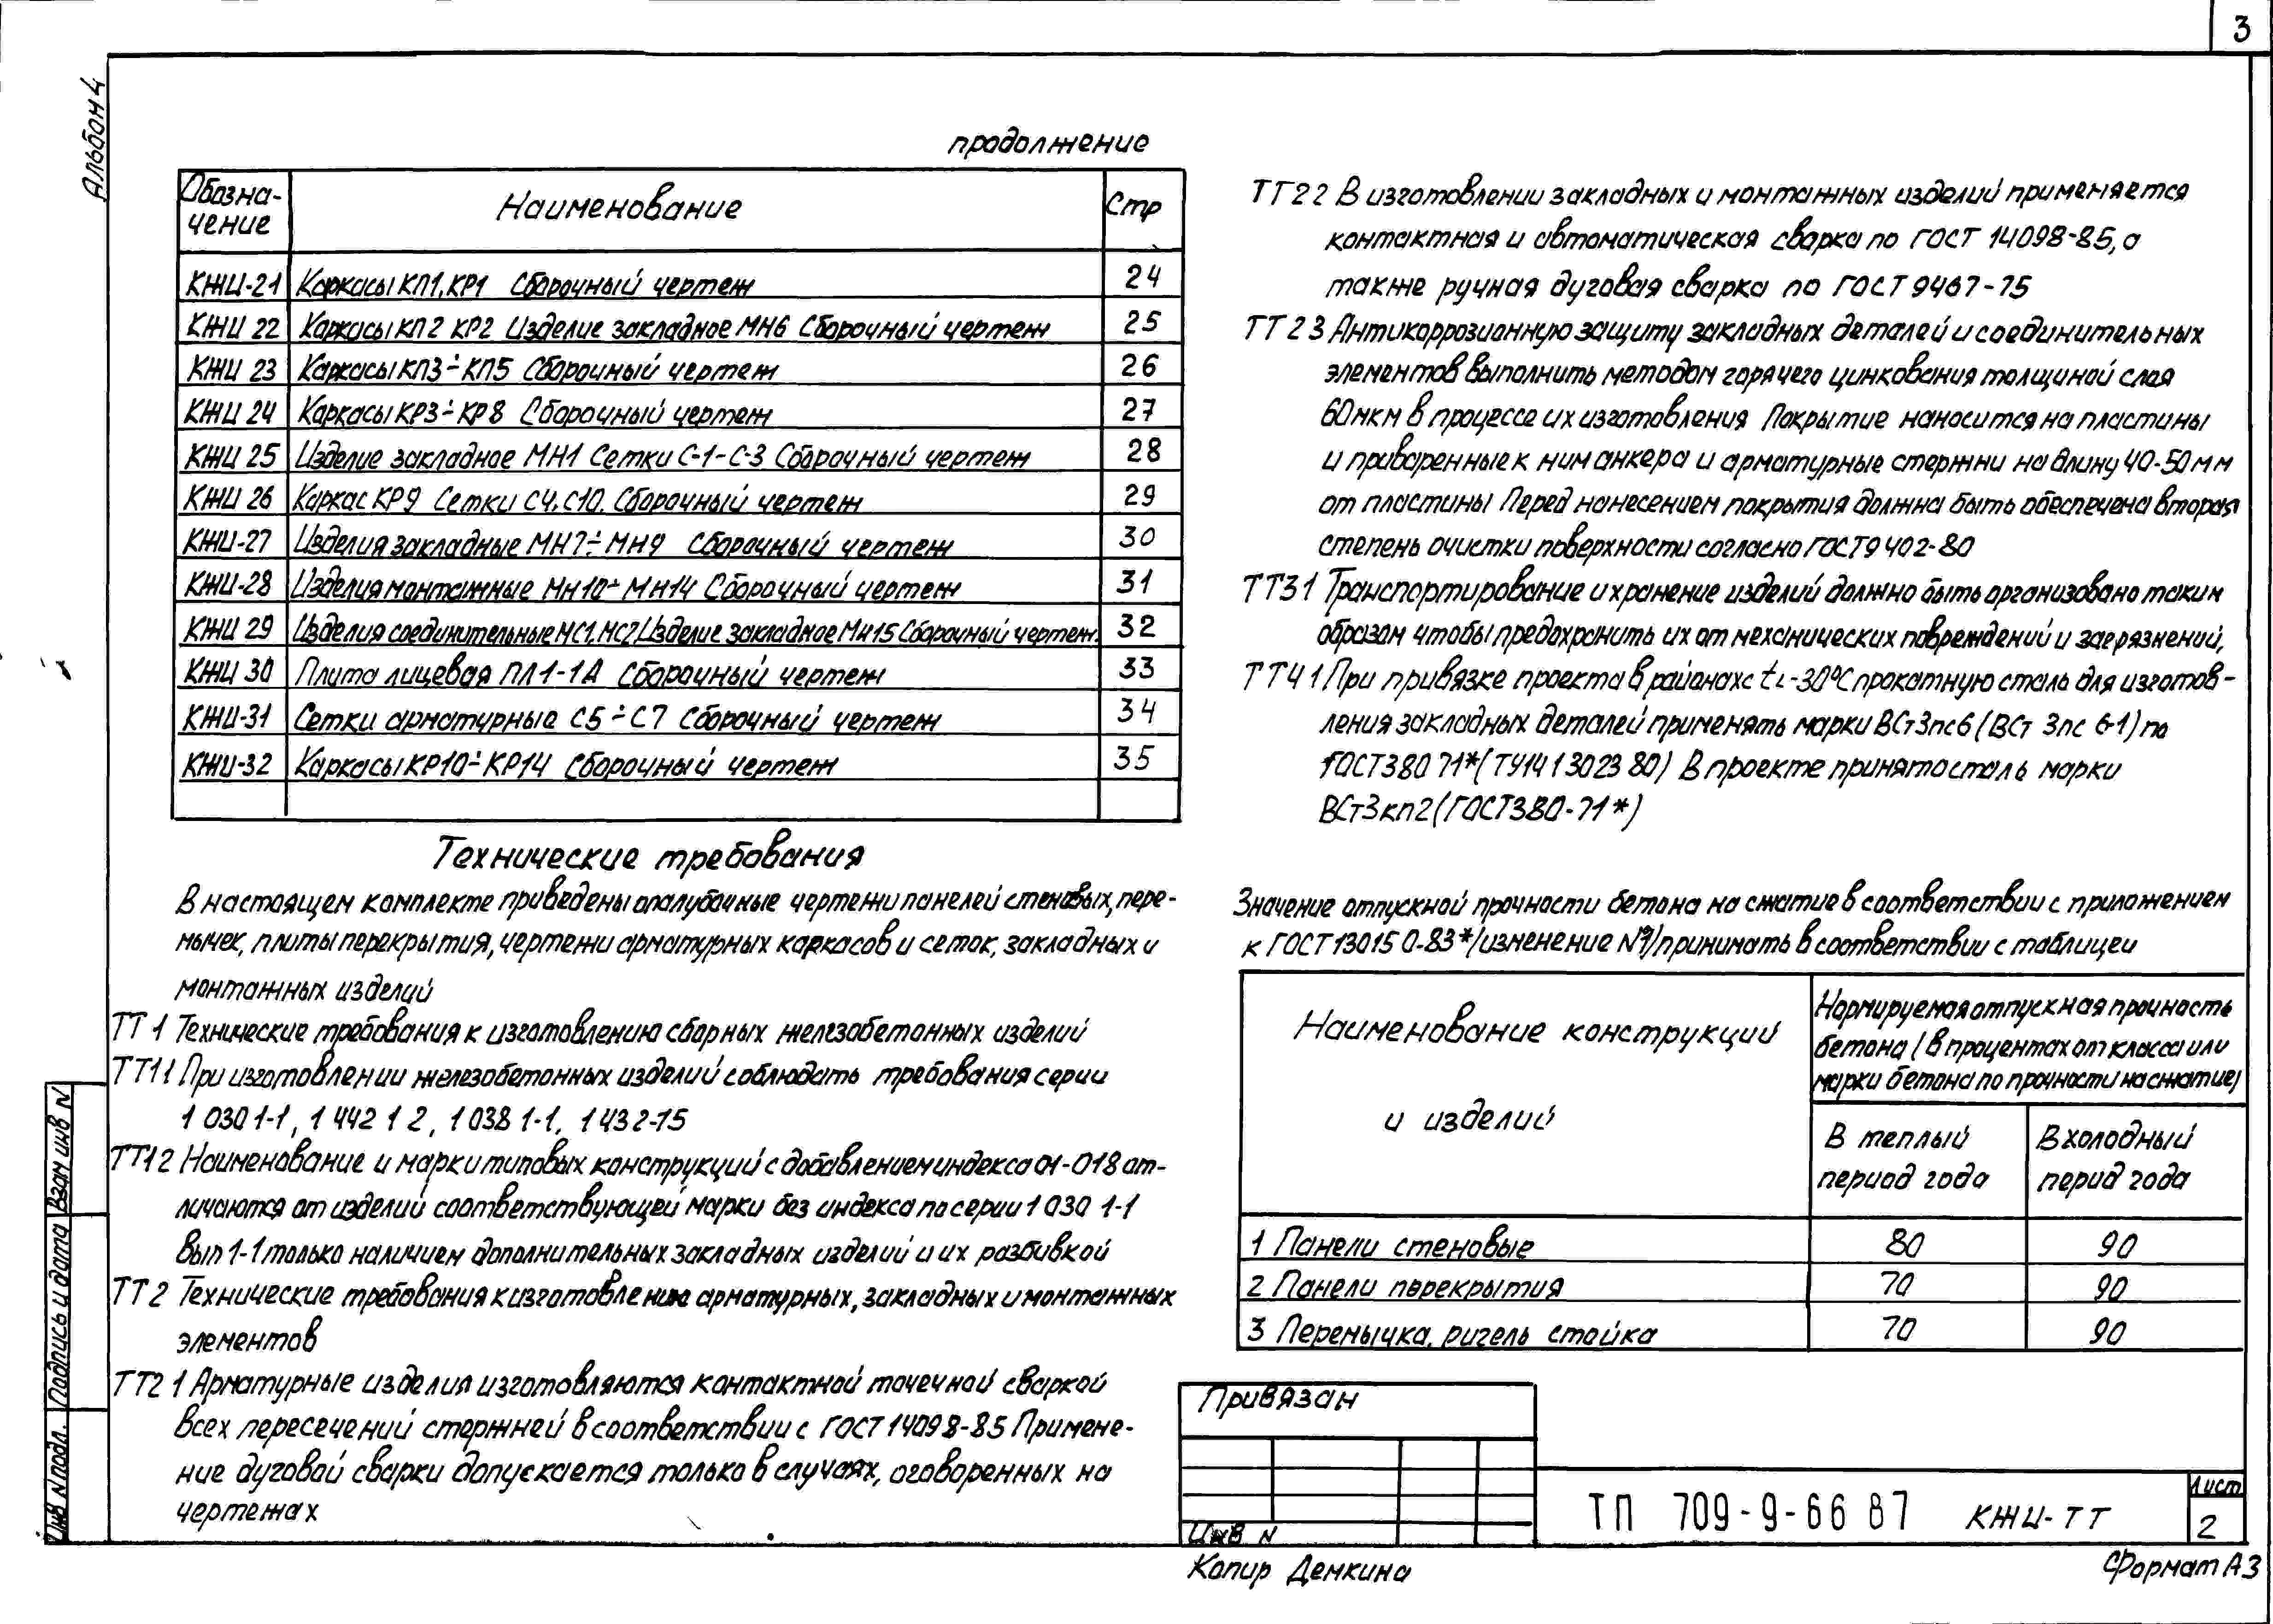 3
Альбом 4
продолжение
Обозна-
чение
Наименование
Стр
КЖИ-21 Каркасы КП1, КР1 Сборочный чертеж 24
КЖИ 22 Каркасы КП2 КР2 Изделие закладное МН6 Сборочный чертеж 25
КЖИ 23 Каркасы КП3÷КП5 Сборочный чертеж 26
КЖИ 24 Каркасы КР3÷КР8 Сборочный чертеж 27
КЖИ 25 Изделие закладное МН1 Сетки С-1-С-3 Сборочный чертеж 28
КЖИ 26 Каркас КР9 Сетки С4, С10. Сборочный чертеж 29
КЖИ-27 Изделия закладные МН7÷МН9 Сборочный чертеж 30
КЖИ-28 Изделия монтажные Мн10÷Мн14 Сборочный чертеж 31
КЖИ 29 Изделия соединительные МС1, МС2 Изделие закладное Мн15 Сборочный чертеж. 32
КЖИ 30 Плита лицевая ПЛ1-1А Сборочный чертеж 33
КЖИ-31 Сетки арматурные С5÷С7 Сборочный чертеж 34
КЖИ-32 Каркасы КР10÷КР14 Сборочный чертеж 35
Технические требования
В настоящем комплекте приведены опалубочные чертежи панелей стеновых, пере-
мычек, плиты перекрытия, чертежи арматурных каркасов и сеток, закладных и
монтажных изделий
ТТ 1 Технические требования к изготовлению сборных железобетонных изделий
ТТ1 1 При изготовлении железобетонных изделий соблюдать требования серии
1 030 1-1, 1 442 1 2, 1 038 1-1, 1 432-15
ТТ1 2 Наименование и марки типовых конструкций с добавлением индекса 01-018 от-
личаются от изделий соответствующей марки без индекса по серии 1 030 1-1
Вып 1-1 только наличием дополнительных закладных изделий и их разбивкой
ТТ 2 Технические требования к изготовлению арматурных, закладных и монтажных
элементов
ТТ2 1 Арматурные изделия изготовляются контактной точечной сваркой
всех пересечений стержней в соответствии с ГОСТ 14098-85 Примене-
ние дуговой сварки допускается только в случаях, оговоренных на
чертежах
ТТ2 2 В изготовлении закладных и монтажных изделий применяется
контактная и автоматическая сварка по ГОСТ 14098-85, а
также ручная дуговая сварка по ГОСТ 9467-75
ТТ 2 3 Антикоррозионную защиту закладных деталей и соединительных
элементов выполнить методом горячего цинкования толщиной слоя
60мкм в процессе их изготовления Покрытие наносится на пластины
и приваренные к ним анкера и арматурные стержни на длину 40-50мм
от пластины Перед нанесением покрытия должна быть обеспечена вторая
степень очистки поверхности согласно ГОСТ 9 402-80
ТТ3 1 Транспортирование и хранение изделий должно быть организовано таким
образом чтобы предохранить их от механических повреждений и загрязнений,
ТТ4 1 При привязке проекта в районах с t<-30°С прокатную сталь для изготов-
ления закладных деталей применять марки ВСт3пс6 (ВСт 3пс 6-1) по
ГОСТ380 71* (ТУ14 1 3023 80) В проекте принята сталь марки
ВСт3кп2 (ГОСТ380-71*)
Значение отпускной прочности бетона на сжатие в соответствии с приложением
к ГОСТ 13015 0-83* /изменение №1/ принимать в соответствии с таблицей
Наименование конструкций
и изделий
Нормируемая отпускная прочность
бетона / в процентах от класса или
марки бетона по прочности на сжатие/
В теплый
период года
В холодный
период года
1 Панели стеновые 80 90
2 Панели перекрытия 70 90
3 Перемычка, ригель стойка 70 90
Привязан
Инв N
ТП 709-9-66 87 КЖИ-ТТ
Лист
2
Копир Демкина
Формат А3
Взам инв N
Подпись и дата
Инв N подл.